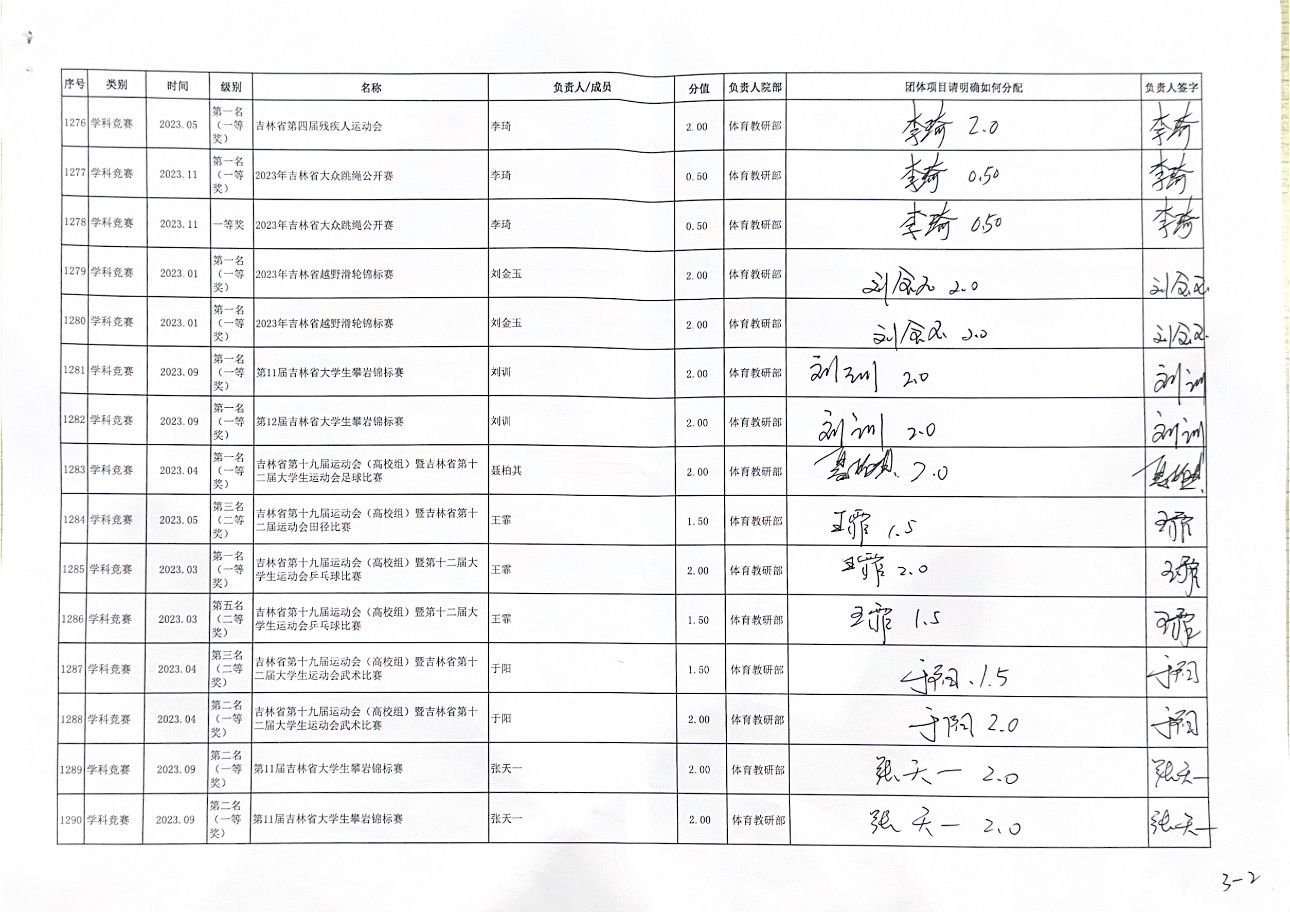 序号 类别 时间 级别 名称 负责人/成员 分值 负责人院部 团体项目请明确如何分配 负责人签字
1276 学科竞赛 2023.05 第一名（一等奖） 吉林省第四届残疾人运动会 李琦 2.00 体育教研部 李琦 2.0 李琦
1277 学科竞赛 2023.11 第一名（一等奖） 2023年吉林省大众跳绳公开赛 李琦 0.50 体育教研部 李琦 0.50 李琦
1278 学科竞赛 2023.11 一等奖 2023年吉林省大众跳绳公开赛 李琦 0.50 体育教研部 李琦 0.50 李琦
1279 学科竞赛 2023.01 第一名（一等奖） 2023年吉林省越野滑轮锦标赛 刘金玉 2.00 体育教研部 刘金玉 2.0 刘金玉
1280 学科竞赛 2023.01 第一名（一等奖） 2023年吉林省越野滑轮锦标赛 刘金玉 2.00 体育教研部 刘金玉 2.0 刘金玉
1281 学科竞赛 2023.09 第一名（一等奖） 第11届吉林省大学生攀岩锦标赛 刘训 2.00 体育教研部 刘训 2.0 刘训
1282 学科竞赛 2023.09 第一名（一等奖） 第12届吉林省大学生攀岩锦标赛 刘训 2.00 体育教研部 刘训 2.0 刘训
1283 学科竞赛 2023.04 第一名（一等奖） 吉林省第十九届运动会（高校组）暨吉林省第十二届大学生运动会足球比赛 聂柏其 2.00 体育教研部 聂柏其 2.0 聂柏其
1284 学科竞赛 2023.05 第三名（二等奖） 吉林省第十九届运动会（高校组）暨吉林省第十二届大学生运动会田径比赛 王霏 1.50 体育教研部 王霏 1.5 王霏
1285 学科竞赛 2023.03 第一名（一等奖） 吉林省第十九届运动会（高校组）暨第十二届大学生运动会乒乓球比赛 王霏 2.00 体育教研部 王霏 2.0 王霏
1286 学科竞赛 2023.03 第五名（二等奖） 吉林省第十九届运动会（高校组）暨第十二届大学生运动会乒乓球比赛 王霏 1.50 体育教研部 王霏 1.5 王霏
1287 学科竞赛 2023.04 第三名（二等奖） 吉林省第十九届运动会（高校组）暨吉林省第十二届大学生运动会武术比赛 于阳 1.50 体育教研部 于阳 1.5 于阳
1288 学科竞赛 2023.04 第二名（一等奖） 吉林省第十九届运动会（高校组）暨吉林省第十二届大学生运动会武术比赛 于阳 2.00 体育教研部 于阳 2.0 于阳
1289 学科竞赛 2023.09 第二名（一等奖） 第11届吉林省大学生攀岩锦标赛 张天一 2.00 体育教研部 张天一 2.0 张天一
1290 学科竞赛 2023.09 第二名（一等奖） 第11届吉林省大学生攀岩锦标赛 张天一 2.00 体育教研部 张天一 2.0 张天一
3-2